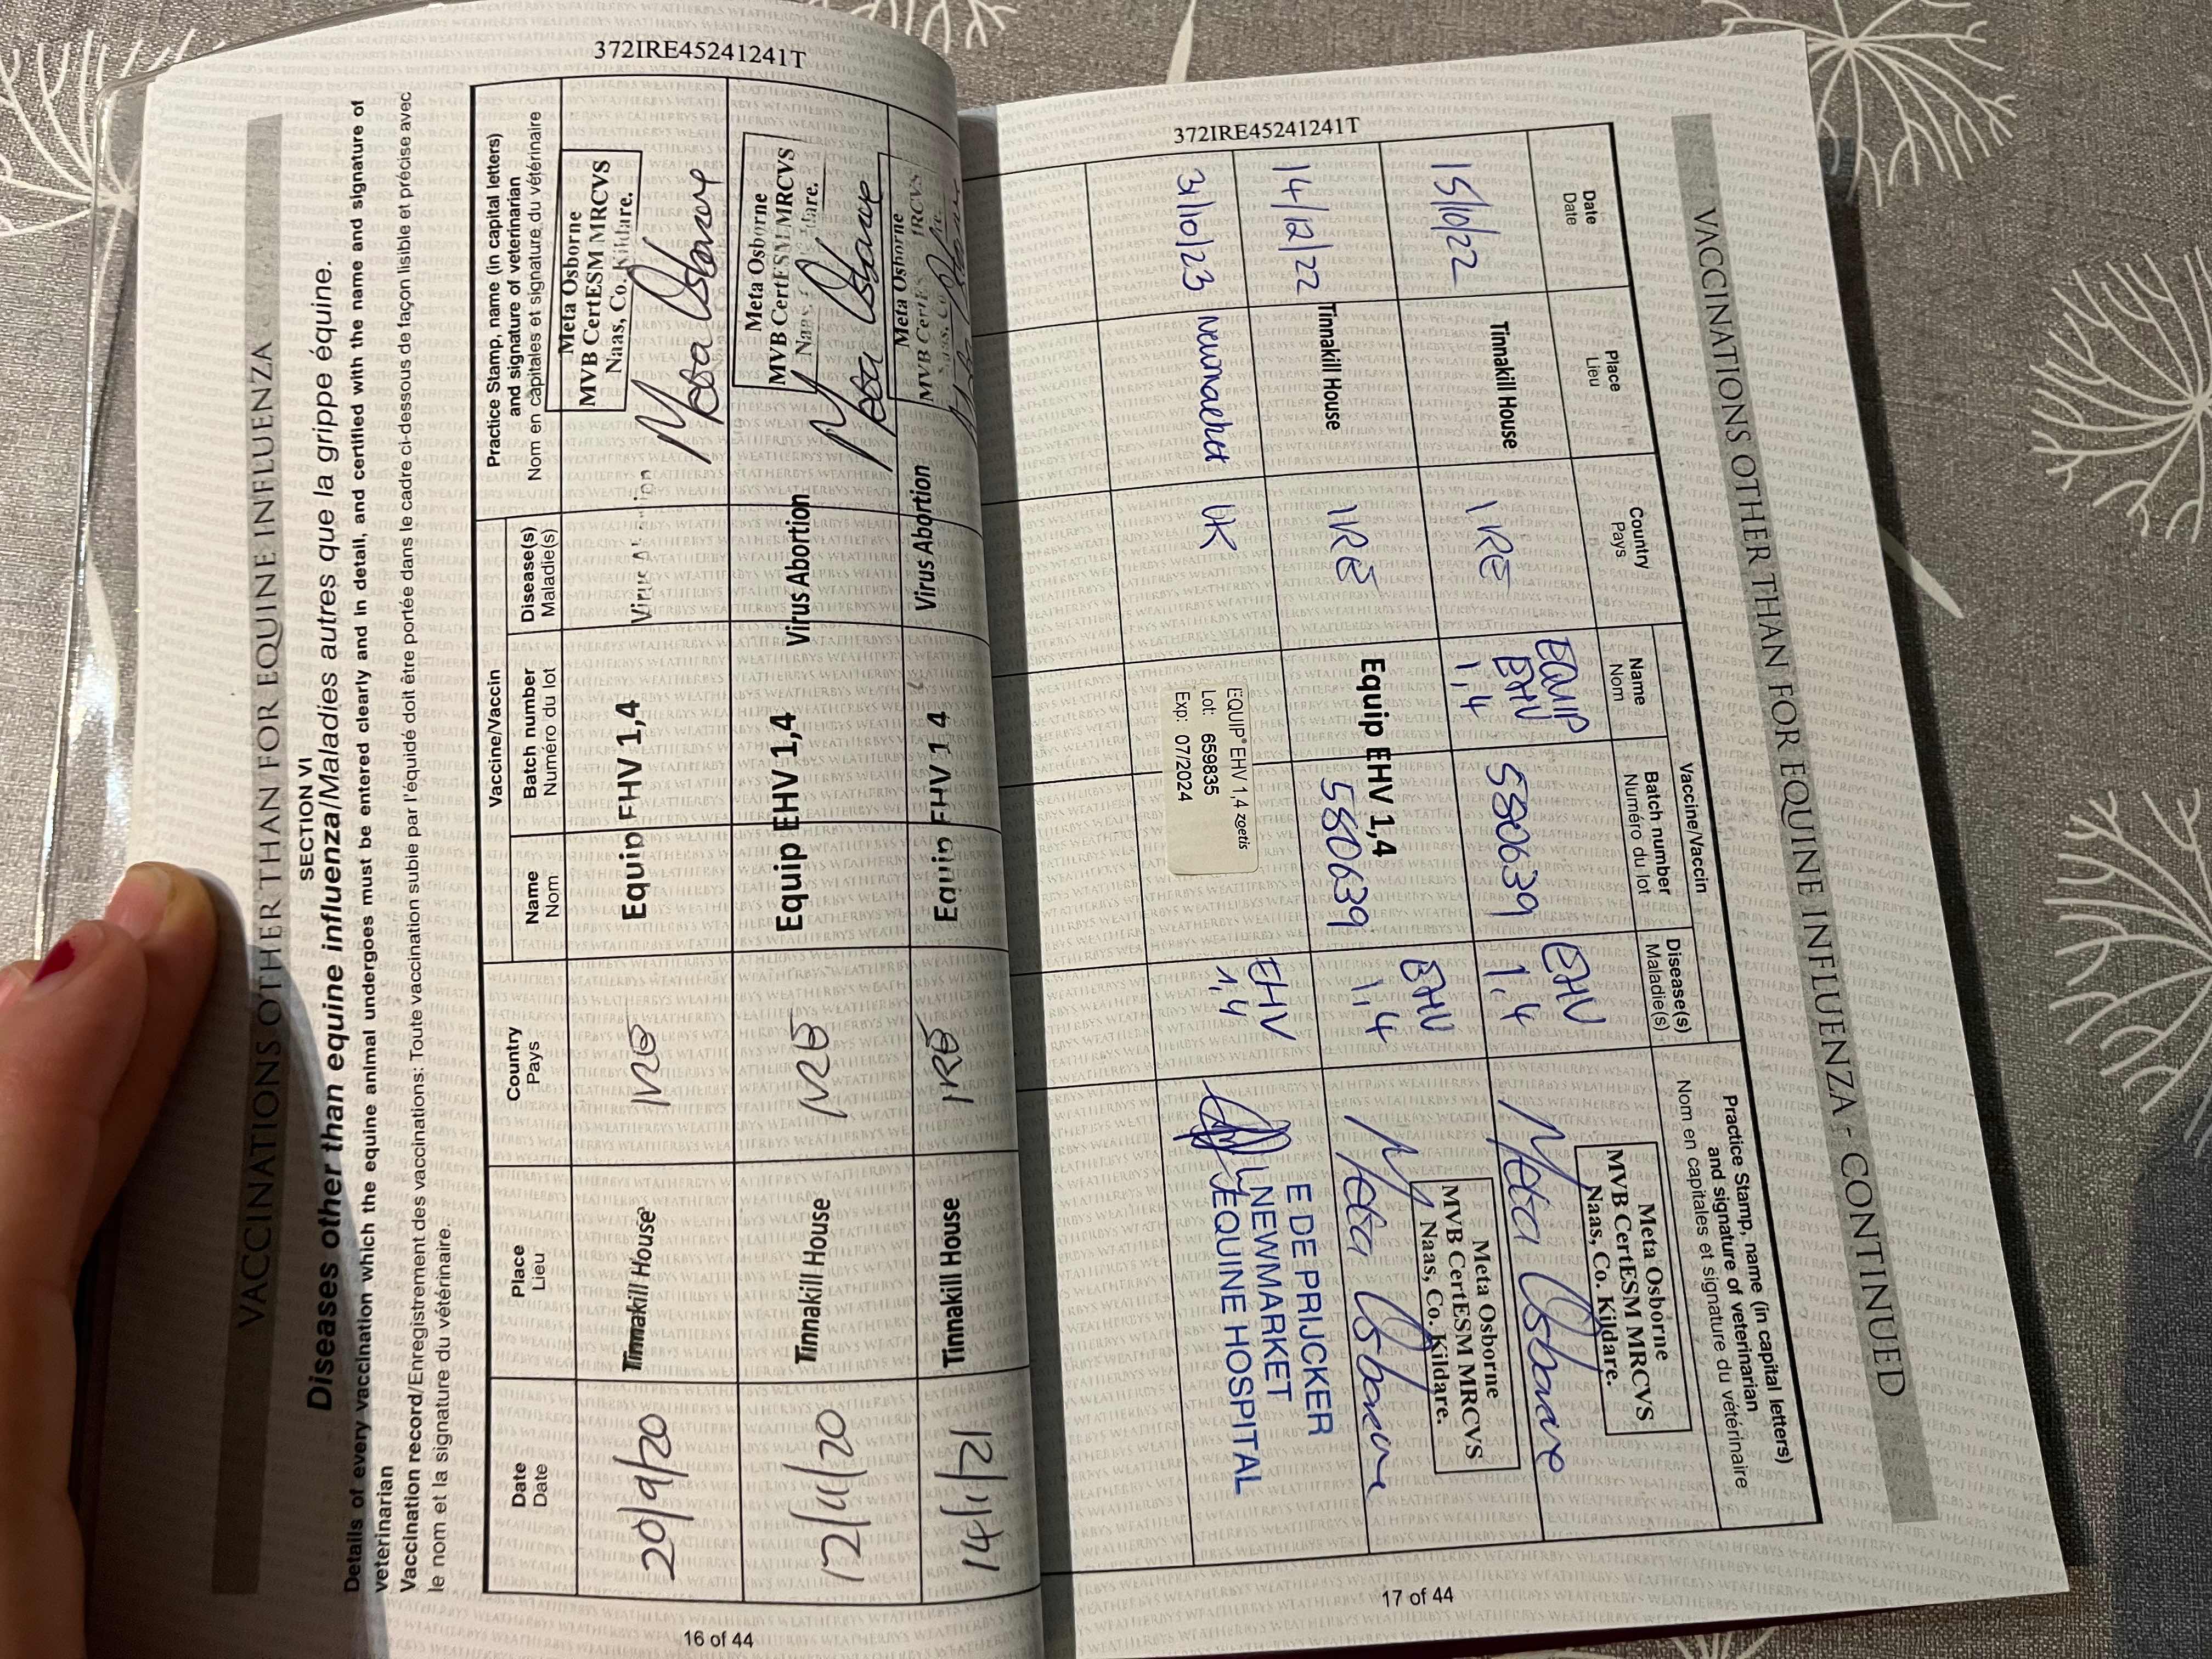 372IRE45241241T
VACCINATIONS OTHER THAN FOR EQUINE INFLUENZA
SECTION VI
Diseases other than equine influenza/Maladies autres que la grippe équine.
Details of every vaccination which the equine animal undergoes must be entered clearly and in detail, and certified with the name and signature of
veterinarian
Vaccination record/Enregistrement des vaccinations: Toute vaccination subie par l'équidé doit être portée dans le cadre ci-dessous de façon lisible et précise avec
le nom et la signature du vétérinaire.
Date
Date
Place
Lieu
Country
Pays
Vaccine/Vaccin
Name
Nom
Batch number
Numéro du lot
Disease(s)
Maladie(s)
Practice Stamp, name (in capital letters)
and signature of veterinarian
Nom en capitales et signature du vétérinaire
20/9/20
Tinnakill House
IRE
Equip EHV 1,4
Virus Abortion
Meta Osborne
MVB CertESM MRCVS
Naas, Co. Kildare.
Meta Osborne
12/11/20
Tinnakill House
IRE
Equip EHV 1,4
Virus Abortion
Meta Osborne
MVB CertESM MRCVS
Naas, Co. Kildare.
Meta Osborne
14/1/21
Tinnakill House
IRE
Equip EHV 1 4
Virus Abortion
Meta Osborne
MVB CertES MRCVS
16 of 44
372IRE45241241T
VACCINATIONS OTHER THAN FOR EQUINE INFLUENZA - CONTINUED
Date
Date
Place
Lieu
Country
Pays
Vaccine/Vaccin
Name
Nom
Batch number
Numéro du lot
Disease(s)
Maladie(s)
Practice Stamp, name (in capital letters)
and signature of veterinarian
Nom en capitales et signature du vétérinaire
15/10/22
Tinnakill House
IRE
EQUIP
EHV
1,4
580639
EHV
1,4
Meta Osborne
MVB CertESM MRCVS
Naas, Co. Kildare.
Meta Osborne
14/12/22
Tinnakill House
IRE
Equip EHV 1,4
580639
EHV
1,4
Meta Osborne
MVB CertESM MRCVS
Naas, Co. Kildare.
Meta Osborne
31/10/23
Newmarket
UK
EQUIP® EHV 1,4 zoetis
Lot: 659835
Exp: 07/2024
EHV
1,4
E DE PRIJCKER
NEWMARKET
EQUINE HOSPITAL
17 of 44